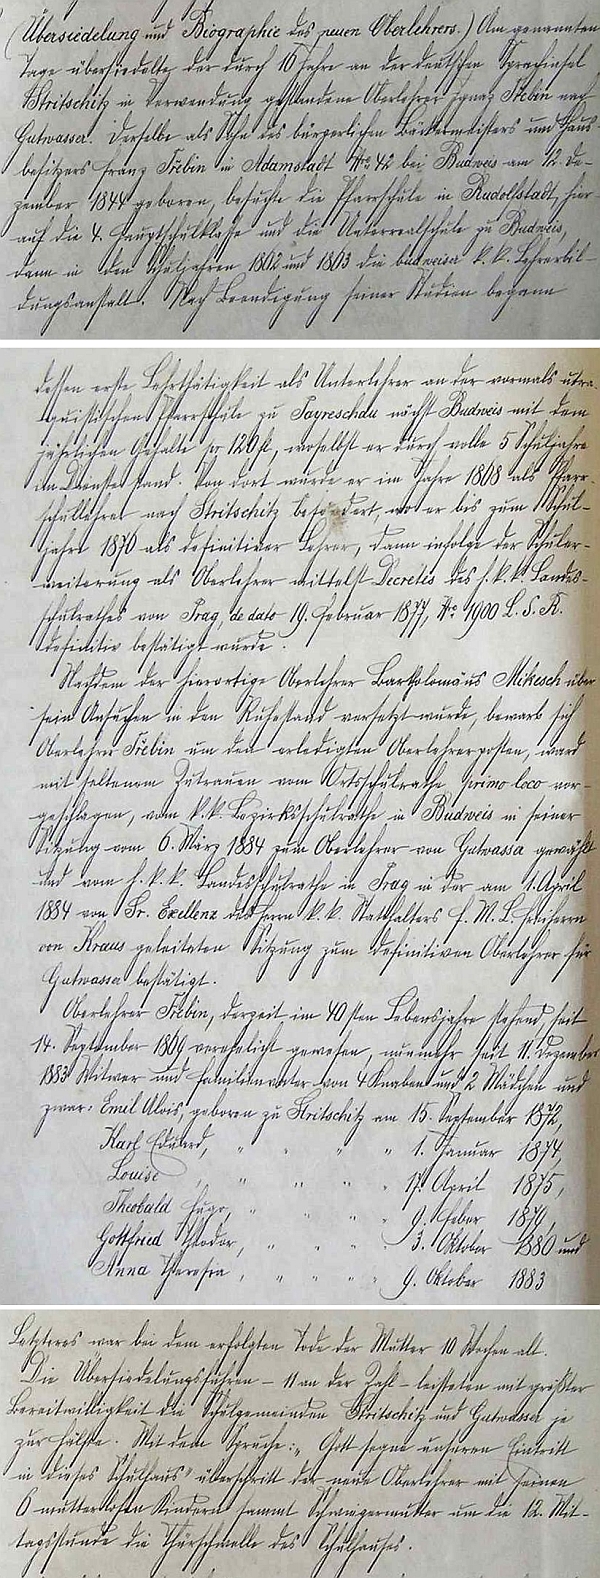 (Übersiedelung und Biographie des neuen Oberlehrers.) Am genannten
Tage übersiedelte der durch 16 Jahre an der deutschen Sprachinsel
Stritschitz in Verwendung gestandene Oberlehrer Ignaz Trebin nach
Gutwasser. Derselbe als Sohn des bürgerlichen Bäckermeisters und Haus-
besitzers Franz Trebin in Adamstadt No 42 bei Budweis am 12. De-
zember 1844 geboren, besuchte die Pfarrschule in Rudolfstadt, hier-
auf die 4. Hauptschulklasse und die Unterrealschule zu Budweis,
dann in den Schuljahren 1862 und 1863 die budweiser k. k. Lehrerbil-
dungsanstalt. Nach Beendigung seiner Studien begann
dessen erste Lehrthätigkeit als Unterlehrer an der vormals utra-
quistischen Pfarrschule zu Payreschau nächst Budweis mit dem
jährlichen Gehalte pr 120 fl, woselbst er durch volle 5 Schuljahre
im Dienste stand. Von dort wurde er im Jahre 1868 als Pfarr-
schullehrer nach Stritschitz befördert, wo er bis zum Schul-
jahre 1876 als definitiver Lehrer, dann infolge der Schuler-
weiterung als Oberlehrer mittelst Decretes des h. k. k. Landes-
schulrathes von Prag, de dato 19. Februar 1877, No 1900 L. S. R.
definitiv bestätigt wurde.
Nachdem der hierortige Oberlehrer Bartholomäus Mikesch über
sein Ansuchen in den Ruhestand versetzt wurde, bewarb sich
Oberlehrer Trebin um den erledigten Oberlehrerposten, ward
mit seltenem Zutrauen vom Ortsschulrathe primo loco vor-
geschlagen, vom k. k. Bezirksschulrathe in Budweis in seiner
Sitzung vom 6. März 1884 zum Oberlehrer von Gutwasser gewählt
und vom h. k. k. Landesschulrathe in Prag in der am 1. April
1884 von Sr. Exellenz des Herrn k. k. Statthalters F. M. L. Freiherrn
von Kraus geleiteten Sitzung zum definitiven Oberlehrer für
Gutwasser bestätigt.
Oberlehrer Trebin, derzeit im 40sten Lebensjahre stehend, seit
14. September 1869 verehelicht gewesen, nunmehr seit 11. Dezember
1883 Witwer und Familienvater von 4 Knaben und 2 Mädchen und
zwar: Emil Alois, geboren zu Stritschitz am 15. September 1872,
Karl Eduard, " " " " 1. Januar 1874,
Louise " " " 17. April 1875,
Theobald Hugo, " " " " 9. Feber 1879,
Gottfried Theodor, " " " " 3. Oktober 1880 und
Anna Theresia, " " " " " 9. Oktober 1883
Letzteres war bei dem erfolgten Tode der Mutter 10 Wochen alt.
Die Übersiedelungsfuhren – 11 an der Zahl – leisteten mit größter
Bereitwilligkeit die Schulgemeinden Stritschitz und Gutwasser je
zur Hälfte. Mit dem Spruche: „Gott segne unseren Eintritt
in dieses Schulhaus" überschritt der neue Oberlehrer mit seinen
6 mutterlosen Kindern sammt Schwiegermutter um die 12. Mit-
tagsstunde die Thürschwelle des Schulhauses.